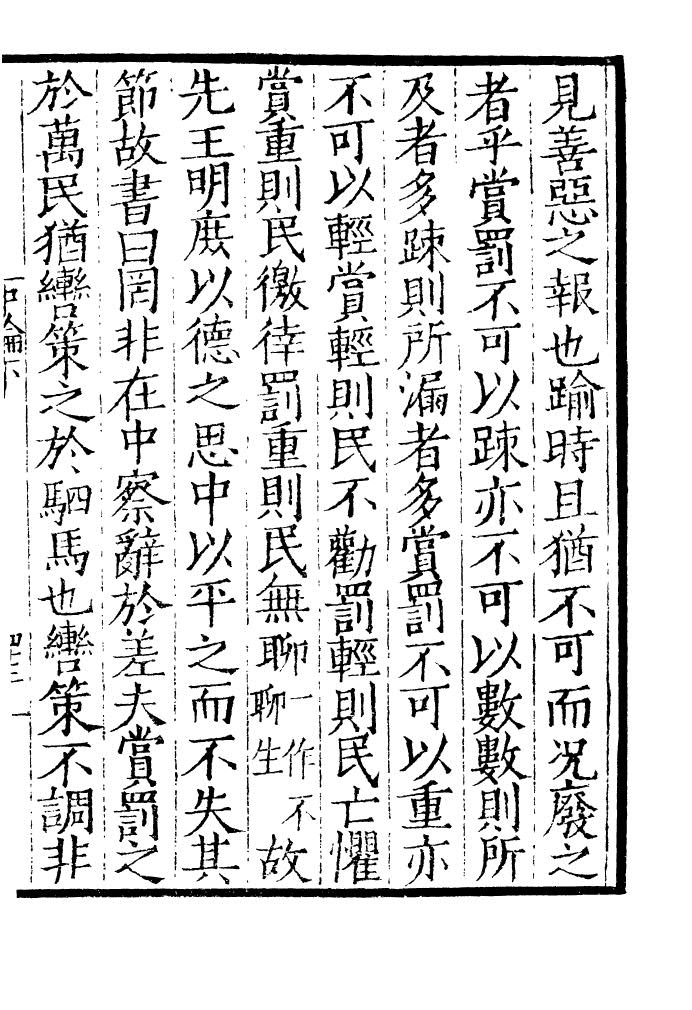 見善惡之報也踰時且猶不可而况廢之
者乎賞罰不可以踈亦不可以數數則所
及者多踈則所漏者多賞罰不可以重亦
不可以輕賞輕則民不勸罰輕則民亡懼
賞重則民徼倖罰重則民無聊一作不聊生故
先王明庻以德之思中以平之而不失其
節故書曰罔非在中察辭於差夫賞罰之
於萬民猶轡策之於駟馬也轡策不調非
中論下
四十三